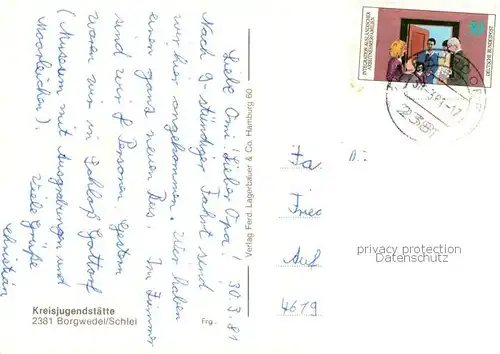 30.3.81
Liebe Omi! Lieber Opa!
Nach 9-stündiger Fahrt sind
wir hier angekommen. Wir haben
einen ganz neuen Bus. Im Zimmer
sind wir 8 Personen. Gestern
waren wir in Schloß Gottorf
(Museum mit Ausgrabungen und
Moorleichen).
Viele Grüße
Christian
Kreisjugendstätte
2381 Borgwedel/Schlei
Frg.
Verlag Ferd. Lagerbauer & Co. Hamburg 60
INTEGRATION AUSLÄNDISCHER
ARBEITNEHMERFAMILIEN
DEUTSCHE BUNDESPOST
50
Fa
D
4619
privacy protection
Datenschutz